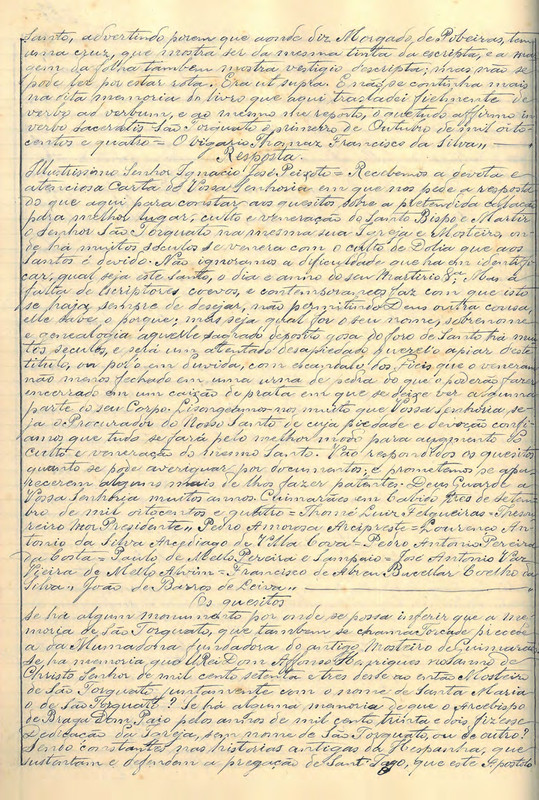 Santo, advertindo porem que aonde diz Morgado de Pobeiras, tem
uma cruz, que mostra ser da mesma tinta da escripta, e a mar
gem da folha tambem mostra vestigio d'escripta; mas não se
pode ler por estar rota. Era ut supra. E não se continha mais
na dita memoria do livro que aqui trasladei fielmente de
verbo ad verbum, e ao mesmo me reporto, o que tudo affirmo in
verbo sacerdotis. São Torquato o primeiro de Outubro de mil oito
centos e quatro = O Vigario Thomaz Francisco da Silva"
Resposta.
Illustrissimo Senhor Ignacio José Peixoto = Recebemos a devota e
atenciosa Carta de Vossa Senhoria em que nos pede a resposta
do que aqui para constar aos quesitos sobre a pretendida collocação
para melhor lugar, culto e veneração do Santo Bispo e Martir
o Senhor São Torquato na mesma sua Igreja e Mosteiro, on
de há muitos seculos se venera com o culto de Dolia que aos
Santos é devido. Não ignoramos a dificuldade que ha em identifi
car, qual seja este Santo, o dia e anno do seu Martirio &a. Mas a
falta de Escriptores coevos, e contemporaneos faz com que isto
se haja sempre de desejar, não permitindo Deus outra cousa,
elle sabe o porque; mas seja qual for o seu nome, sobrenome
e genealogia aquelle sagrado deposito gosa do foro de Santo há mui
tos seculos, e será um attentado desapiedado querel-o apiar deste
titulo, ou pol-o em duvida, com escandalo dos Fieis que o veneram
não menos fechado em uma urna de pedra do que o poderão fazer
encerrado em um caixão de prata em que se deixe ver alguma
parte do seu Corpo. Lisongeamo-nos muito que Vossa Senhoria se
ja o Procurador do Nosso Santo de cuja piedade e devoção confi
amos que tudo se fará pelo melhor modo para augmento do
culto e veneração do mesmo Santo. Vão respondidos os quesitos
quanto se pode averiguar por documentos; e promettemos se apa
recerem alguns mais de lhos fazer patentes. Deus Guarde a
Vossa Senhoria muitos annos. Guimarães em Cabido tres de Setem
bro de mil oitocentos e quatro = Thomé Luiz Felgueiras = Thesou
reiro Mor Presidente" Pedro Amorosa Arcipreste = Lourenço An
tonio da Silva Arcediago de Villa Cova = Pedro Antonio Pereira
da Costa = Paulo de Mello Pereira e Sampaio = José Antonio Vaz
Vieira de Mello Alvim = Francisco de Abreu Bacellar Coelho da
Silva" João de Barros de Leiva"
Os quesitos
Se há algum monumento por onde se possa inferir que a me
moria de São Torquato, que tambem se chama Torcade precede
a da Mumadona fundadora do antigo Mosteiro de Guimarães.
Se ha memoria, que ElRei Dom Affonso Henriques no anno de
Christo Senhor de mil cento setenta e tres desse ao então Mosteiro
de São Torquato juntamente com o nome de Santa Maria
o de São Torquato? Se há alguma memoria de que o Arcebispo
de Braga Dom Paio pelos annos de mil cento trinta e dois, fizesse
Dedicação da Igreja, sem nome de São Torquato, ou de outro?
Sendo constantes nas historias antigas da Hespanha, que
sustentam e defendem a pregação de Sant'Iago, que este Apostolo